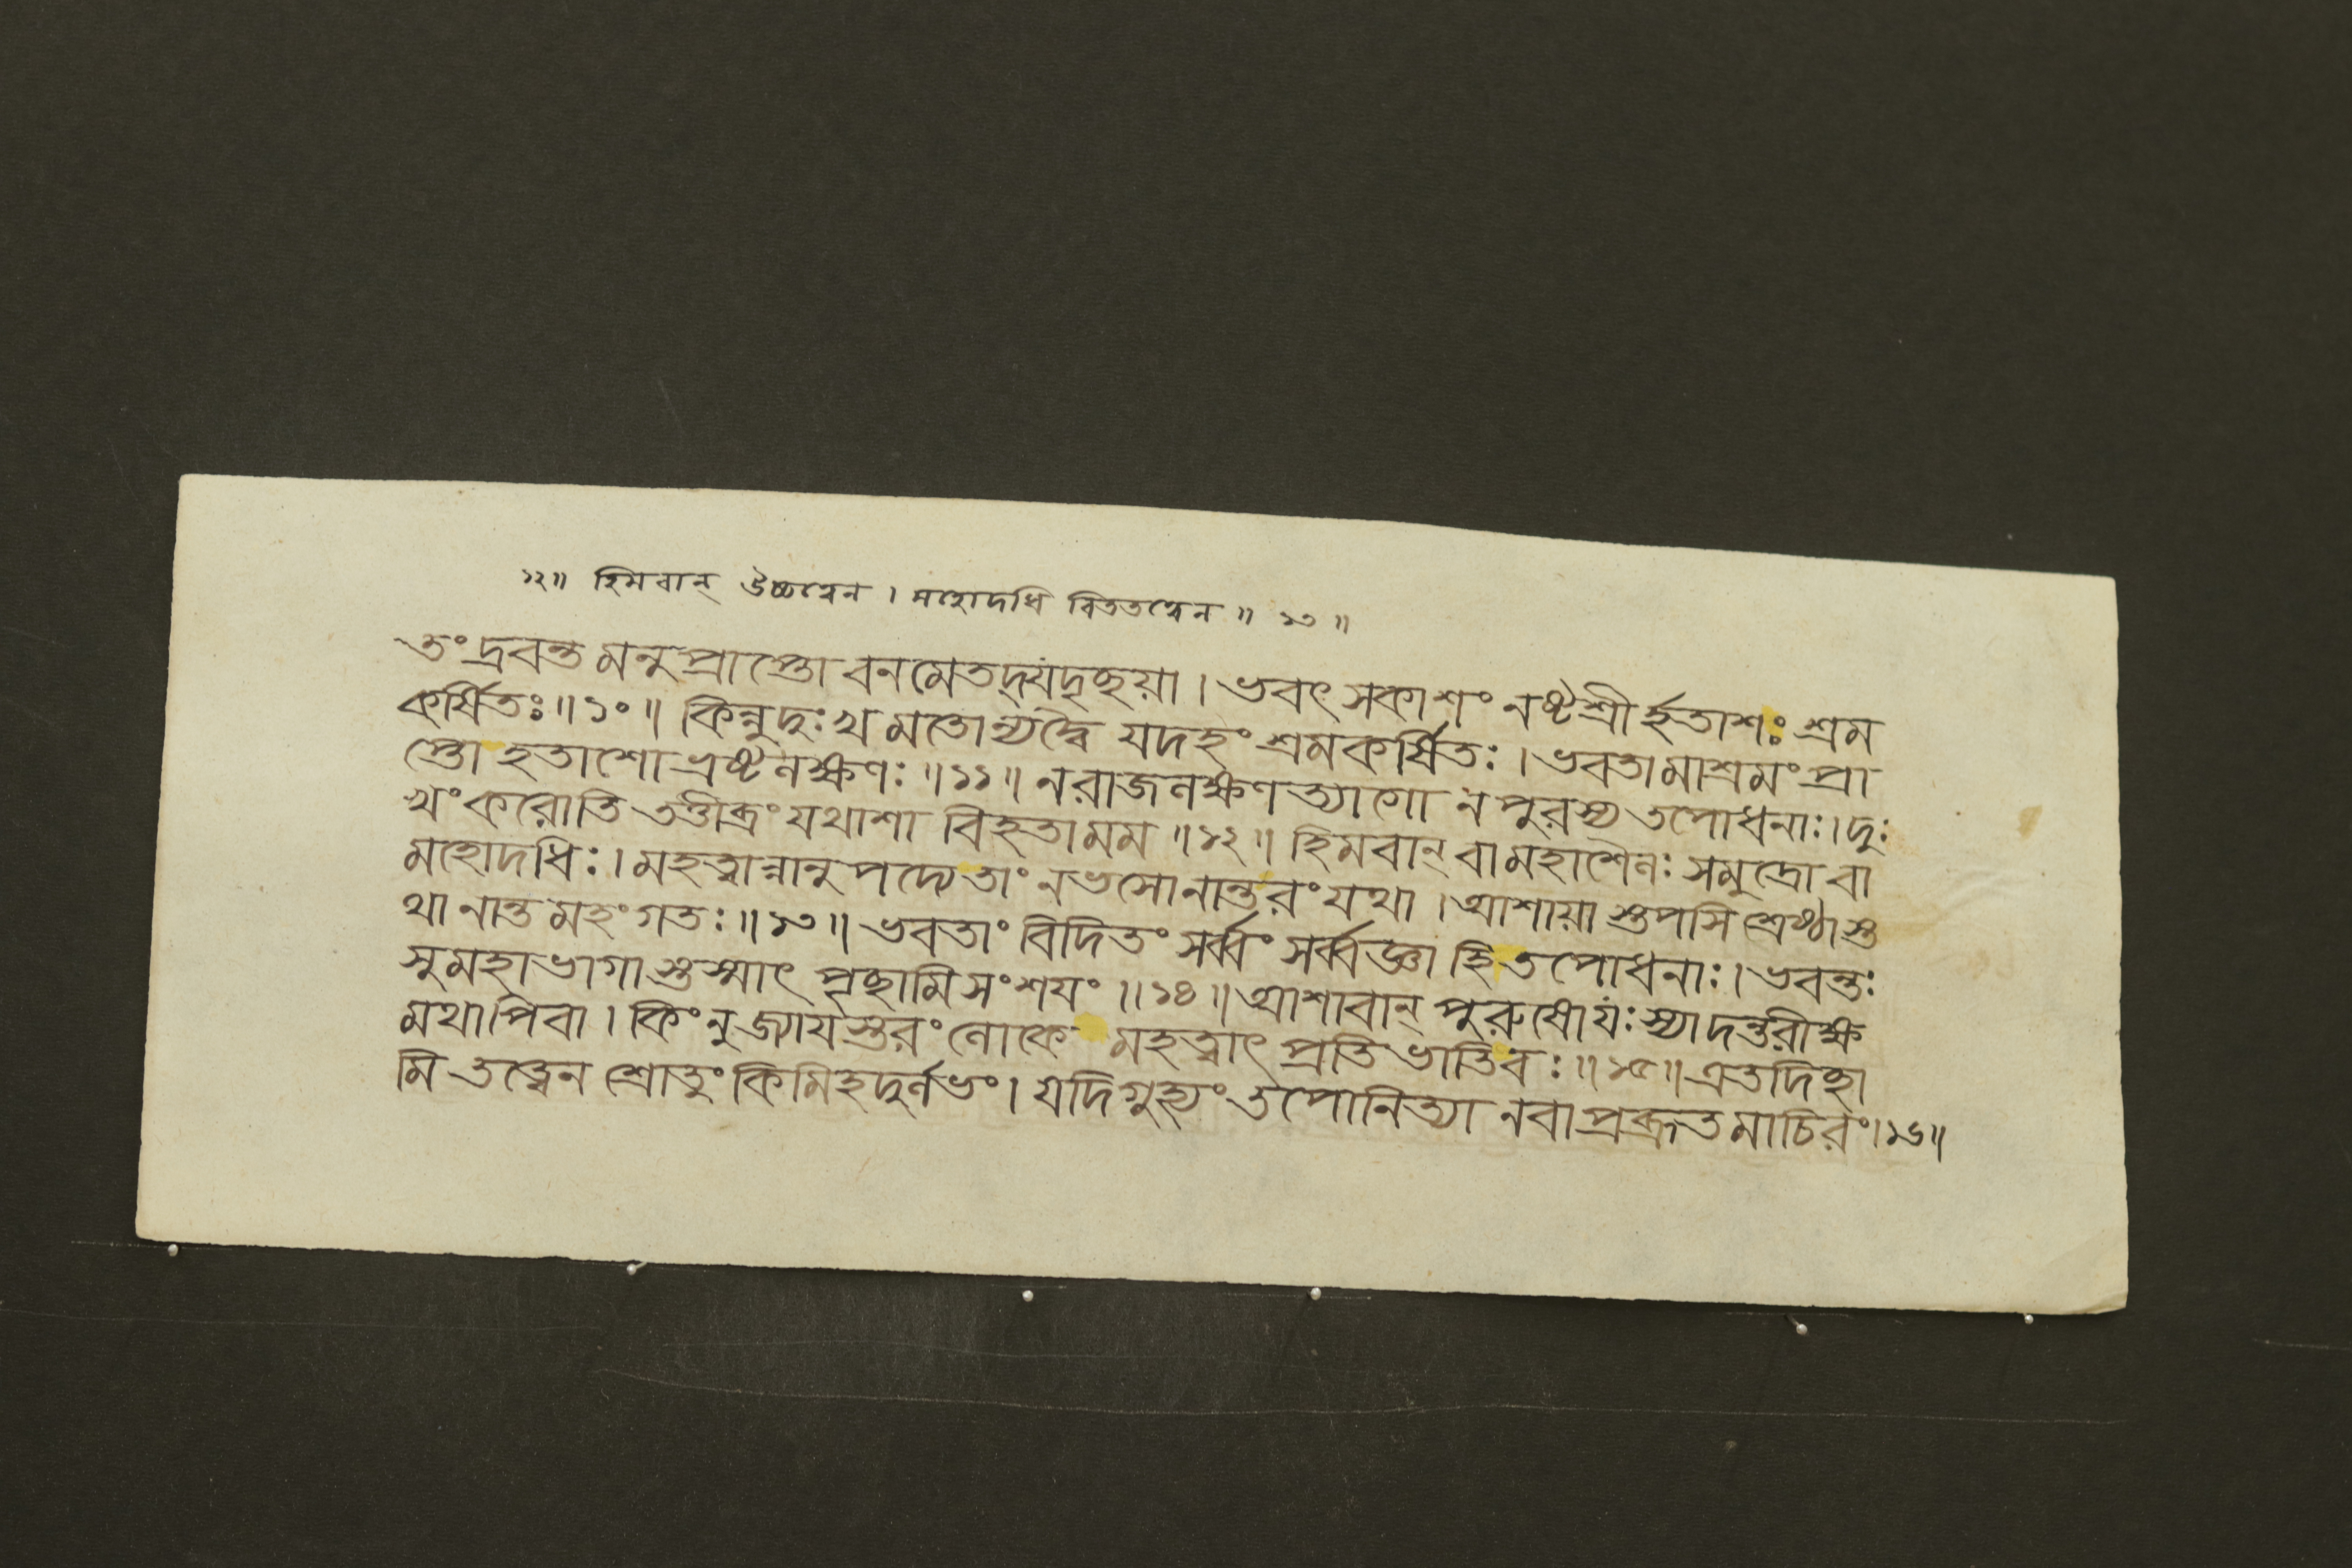 ১২॥ হিমবান্ উচ্চত্বেন । মহোদধি বিততত্বেন ॥ ১৩ ॥
তং দ্রবন্ত মনুপ্রাপ্তো বনমেতদ্যদৃচ্ছয়া । ভবৎ সকাশং নষ্টশ্রীর্হতাশঃ শ্রম
কর্ষিতঃ ॥ ১০ ॥ কিন্নুদুঃখ মতোন্যদ্বৈ যদহং শ্রমকর্ষিতঃ । ভবতামাশ্রমং প্রা
প্তো হতাশো ভ্রষ্টলক্ষণঃ ॥ ১১ ॥ নরাজলক্ষণ ত্যাগো নপুরস্য তপোধনাঃ । দুঃ
খং করোতি তত্তীব্রং যথাশা বিহতামম ॥ ১২ ॥ হিমবান্ বামহাশৈলঃ সমুদ্রো বা
মহোদধিঃ । মহত্বান্নানুপদ্যেতাং নভসোনান্তরং যথা । আশায়াস্তপসি শ্রেষ্ঠাস্ত
থা নান্ত মহংগতঃ ॥ ১৩ ॥ ভবতাং বিদিতং সর্ব্বং সর্ব্বজ্ঞা হি তপোধনাঃ । ভবন্তঃ
সুমহাভাগাস্তস্মাৎ পৃচ্ছামি সংশযং ॥ ১৪ ॥ আশাবান্ পুরুষোযঃ স্যাদন্তরীক্ষ
মথাপিবা । কিংনুজ্যাযস্তরং লোকে মহত্বাৎ প্রতিভাতিবঃ ॥ ১৫ ॥ এতদিচ্ছা
মি তত্ত্বেন শ্রোতুং কিমিহদুর্লভং । যদিগুহ্যং তপোনিত্যা নবাপ্রব্রূতমাচিরং । ১৬ ॥